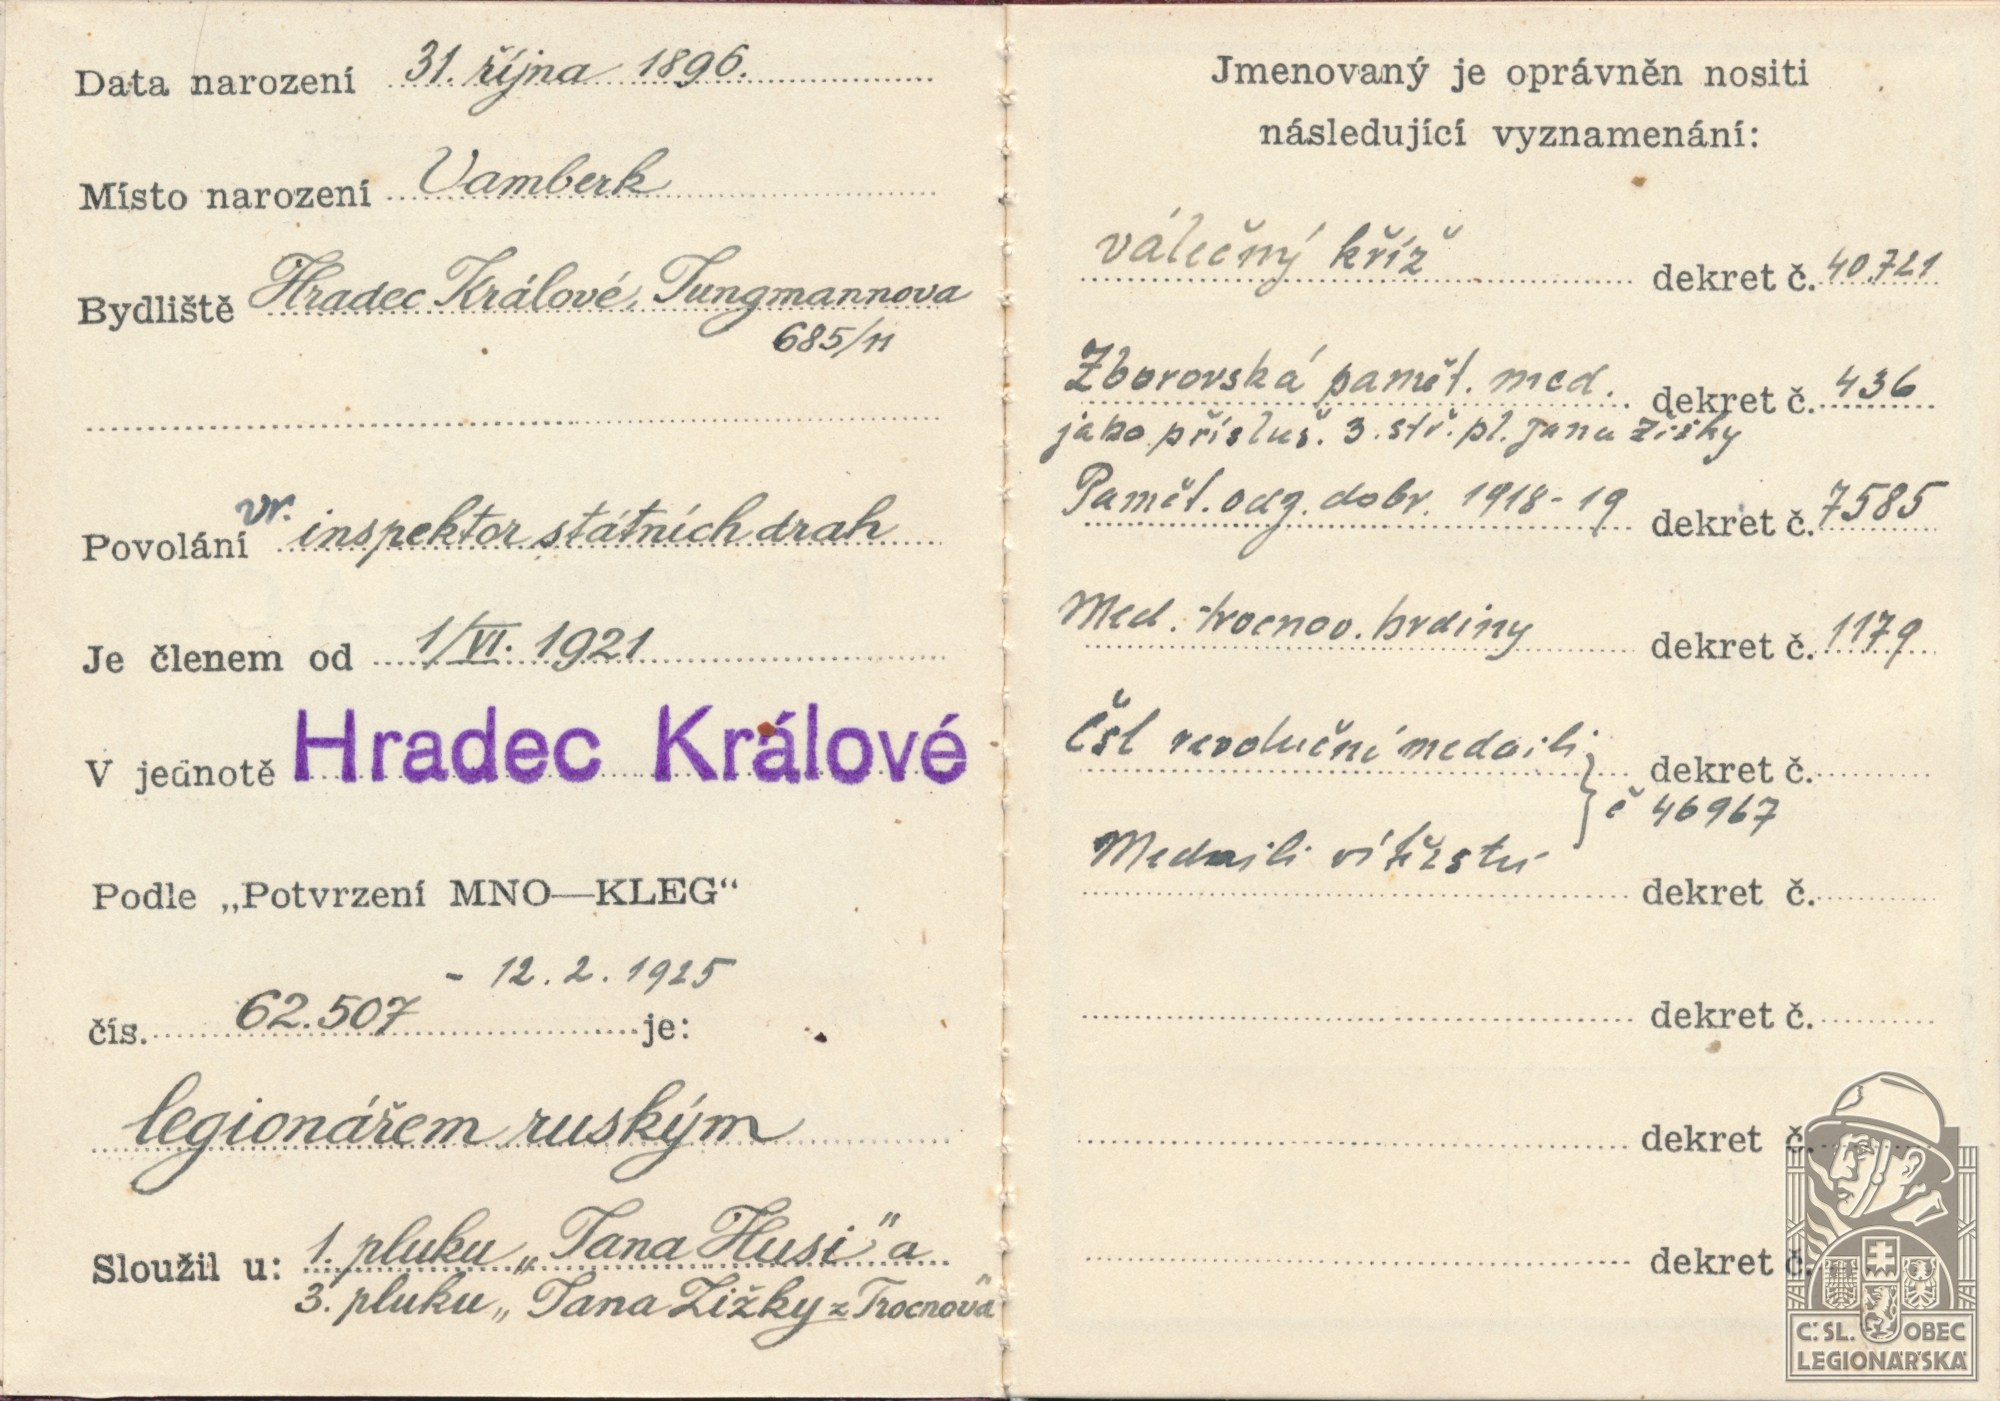 Data narození 31. října 1896.
Místo narození Vamberk
Bydliště Hradec Králové, Jungmannova
685/II
Povolání vr. inspektor státních drah
Je členem od 1/VI. 1921
V jednotě Hradec Králové
Podle „Potvrzení MNO—KLEG“
- 12. 2. 1925
čís. 62.507 je:
legionářem ruským
Sloužil u: 1. pluku „Jana Husi" a
3. pluku „Jana Žižky z Trocnova"
Jmenovaný je oprávněn nositi
následující vyznamenání:
válečný kříž dekret č. 40.721
Zborovská pamět. med. dekret č. 436
jako přísluš. 3. stř. pl. Jana Žižky
Pamět. odz. dobr. 1918-19 dekret č. 7585
Med. trocnov. hrdiny dekret č. 1179
Čsl revoluční medaili dekret č.
č 46967
Medaili vítězství dekret č.
dekret č.
dekret č.
dekret č.
Č.SL. OBEC
LEGIONÁŘSKÁ